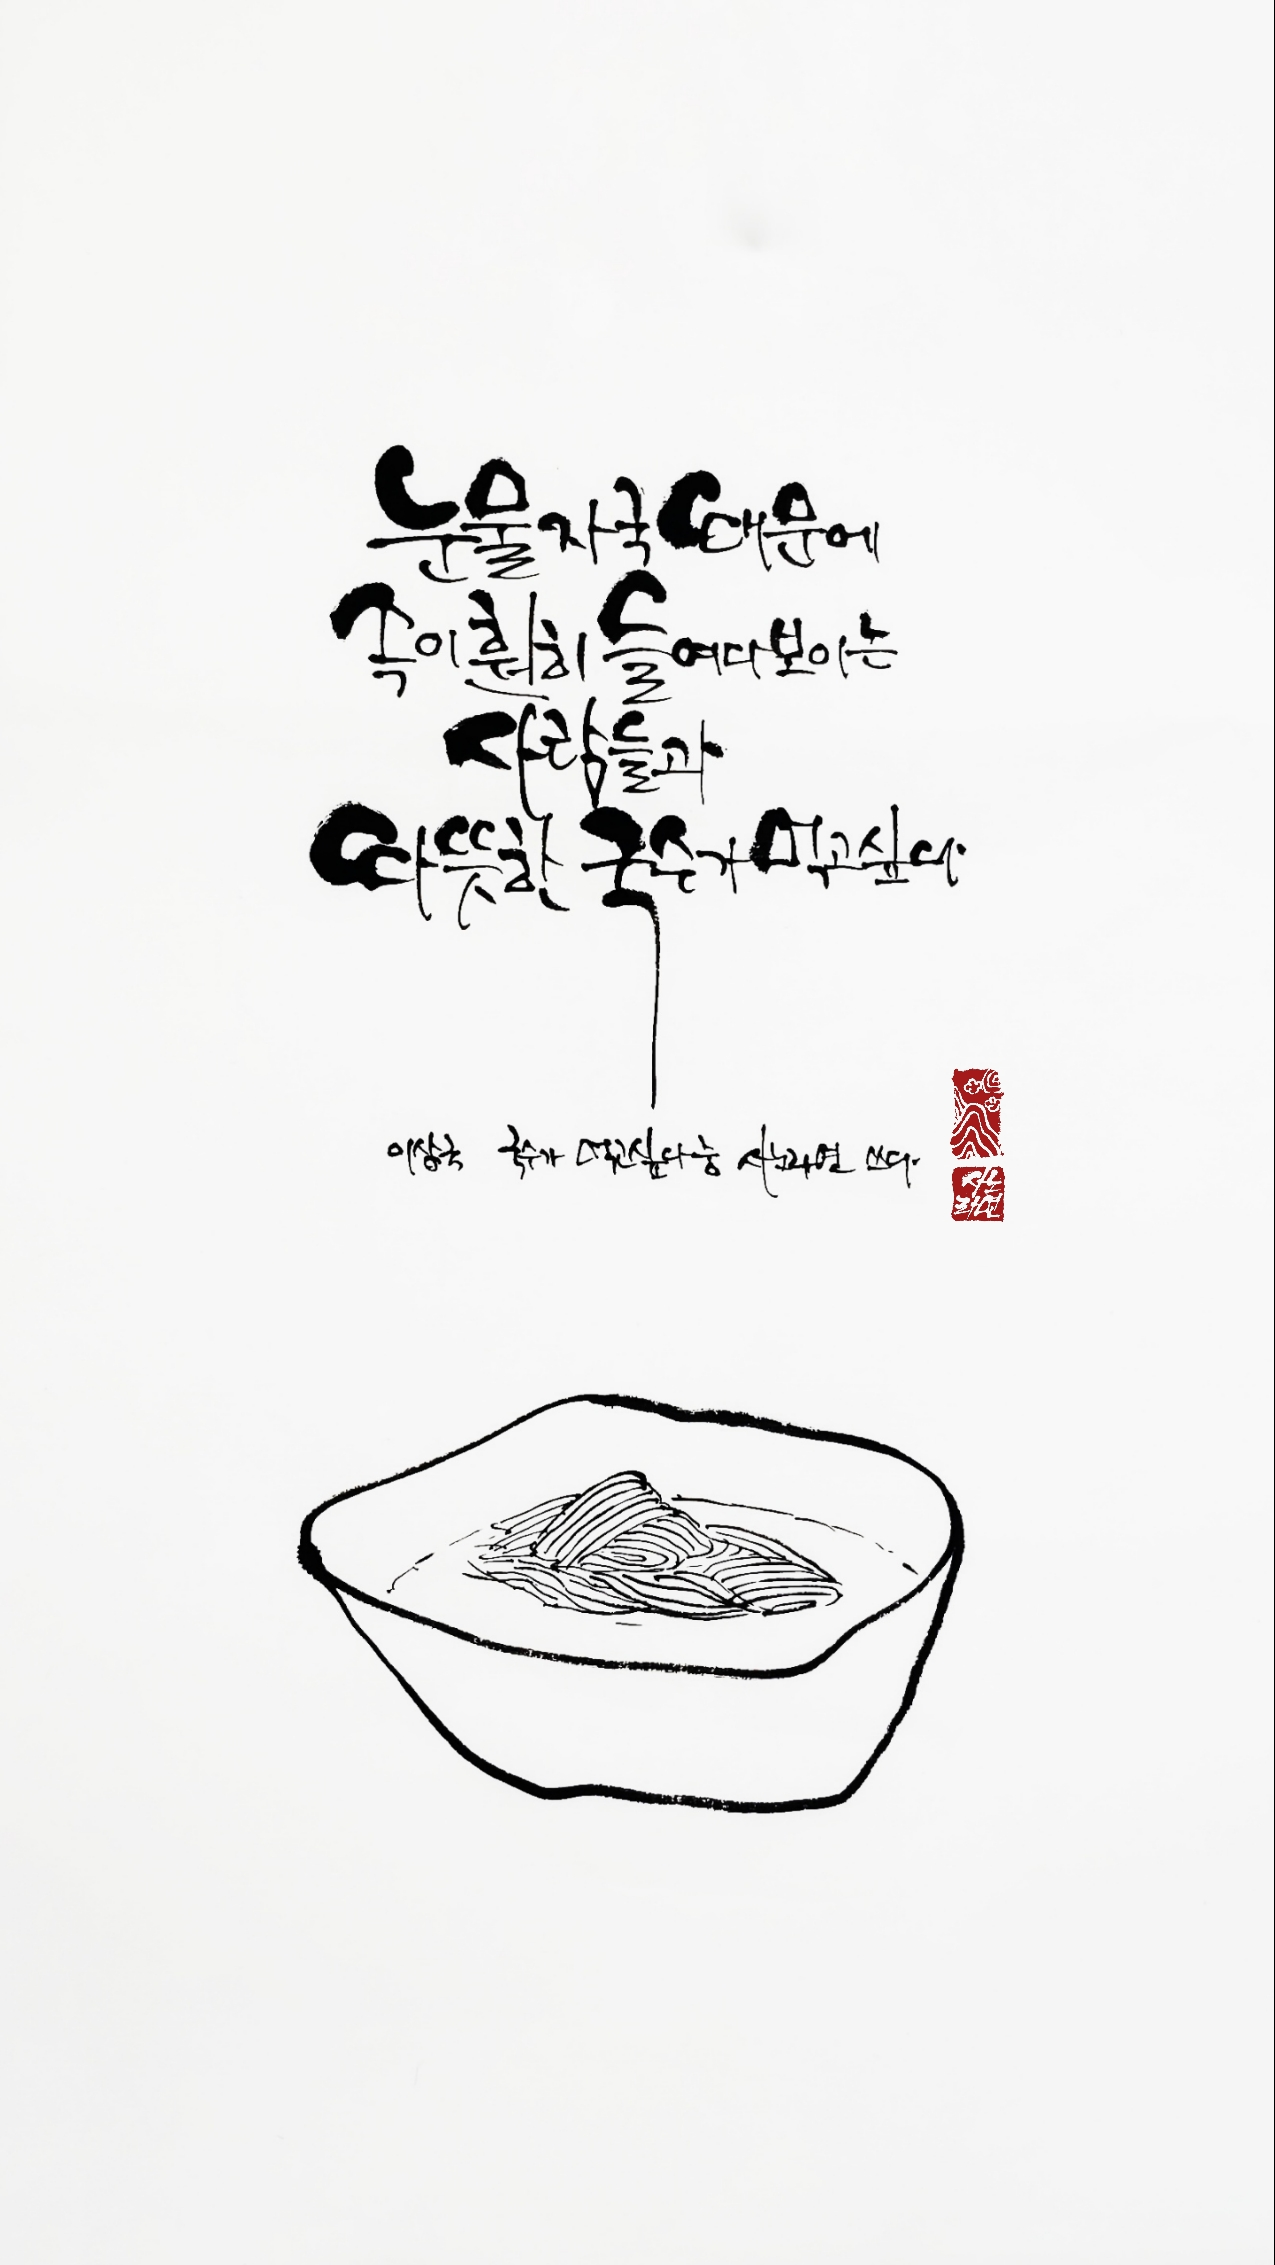 눈물자국 때문에
속이 훤히 들여다보이는
사람들과
따뜻한 국수가 먹고싶다
이상국 국수가 먹고싶다 중 시노라연 쓰다.